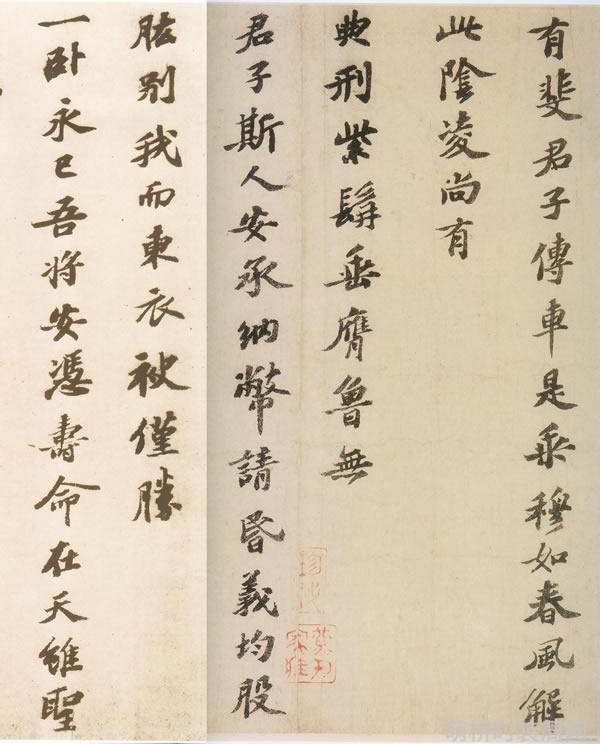 有斐君子傳車是乘穆如春風解
此陰凌尚有
典刑紫髯垂膺魯無
君子斯人安承納幣請昏義均股
肱别我而東衣被僅勝
一卧永已吾将安憑壽命在天雖聖